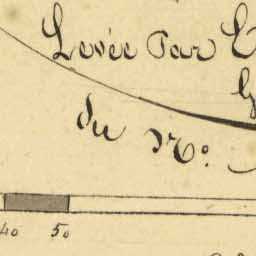 Levée Par
du N.º
40 50